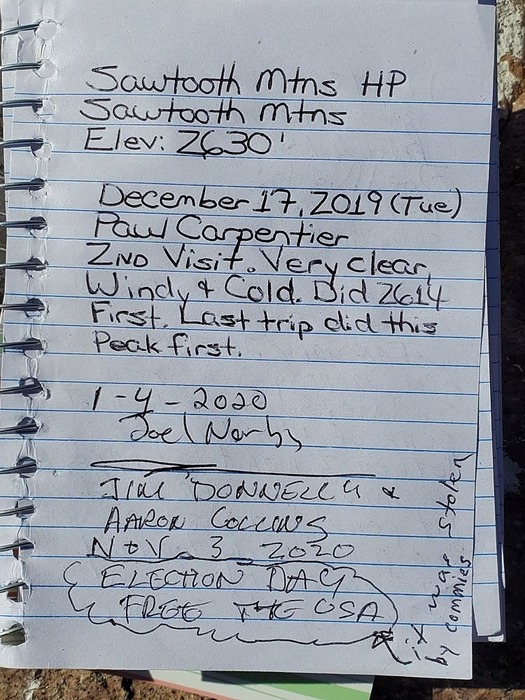 Sawtooth Mtns HP
Sawtooth Mtns
Elev: 2630'
December 17, 2019 (Tue)
Paul Carpentier
2ND Visit. Very clear,
Windy & Cold. Did 2614
First. Last trip did this
Peak first.
1-4-2020
Joel Norby
JIM DONNELLY &
AARON COLLINS
NOV. 3 2020
ELECTION DAY
FREE THE USA
it was stolen
by commies